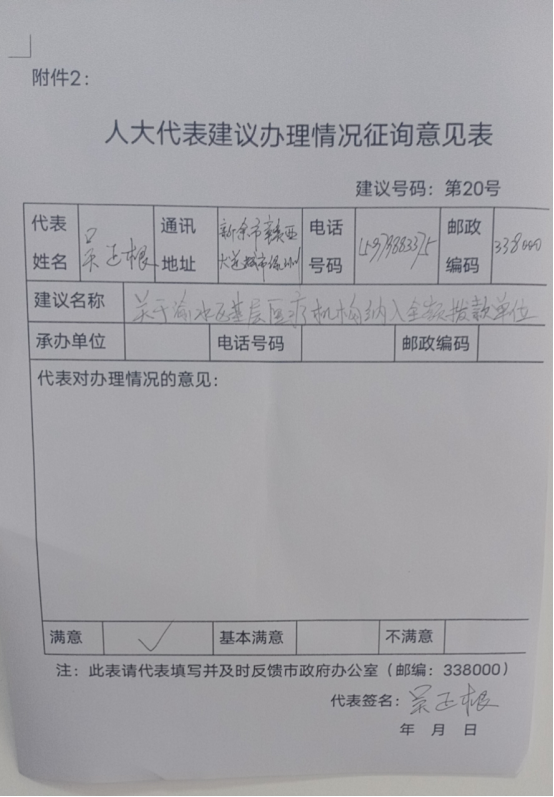 附件2：
人大代表建议办理情况征询意见表
建议号码：第20号
代表姓名 吴正根 通讯地址 新余市赣西大道城市 电话号码 15979883375 邮政编码 338000
建议名称 关于渝水区基层医疗机构纳入全额拨款单位
承办单位 电话号码 邮政编码
代表对办理情况的意见：
满意 ✓ 基本满意 不满意
注：此表请代表填写并及时反馈市政府办公室（邮编：338000）
代表签名：吴正根
年 月 日